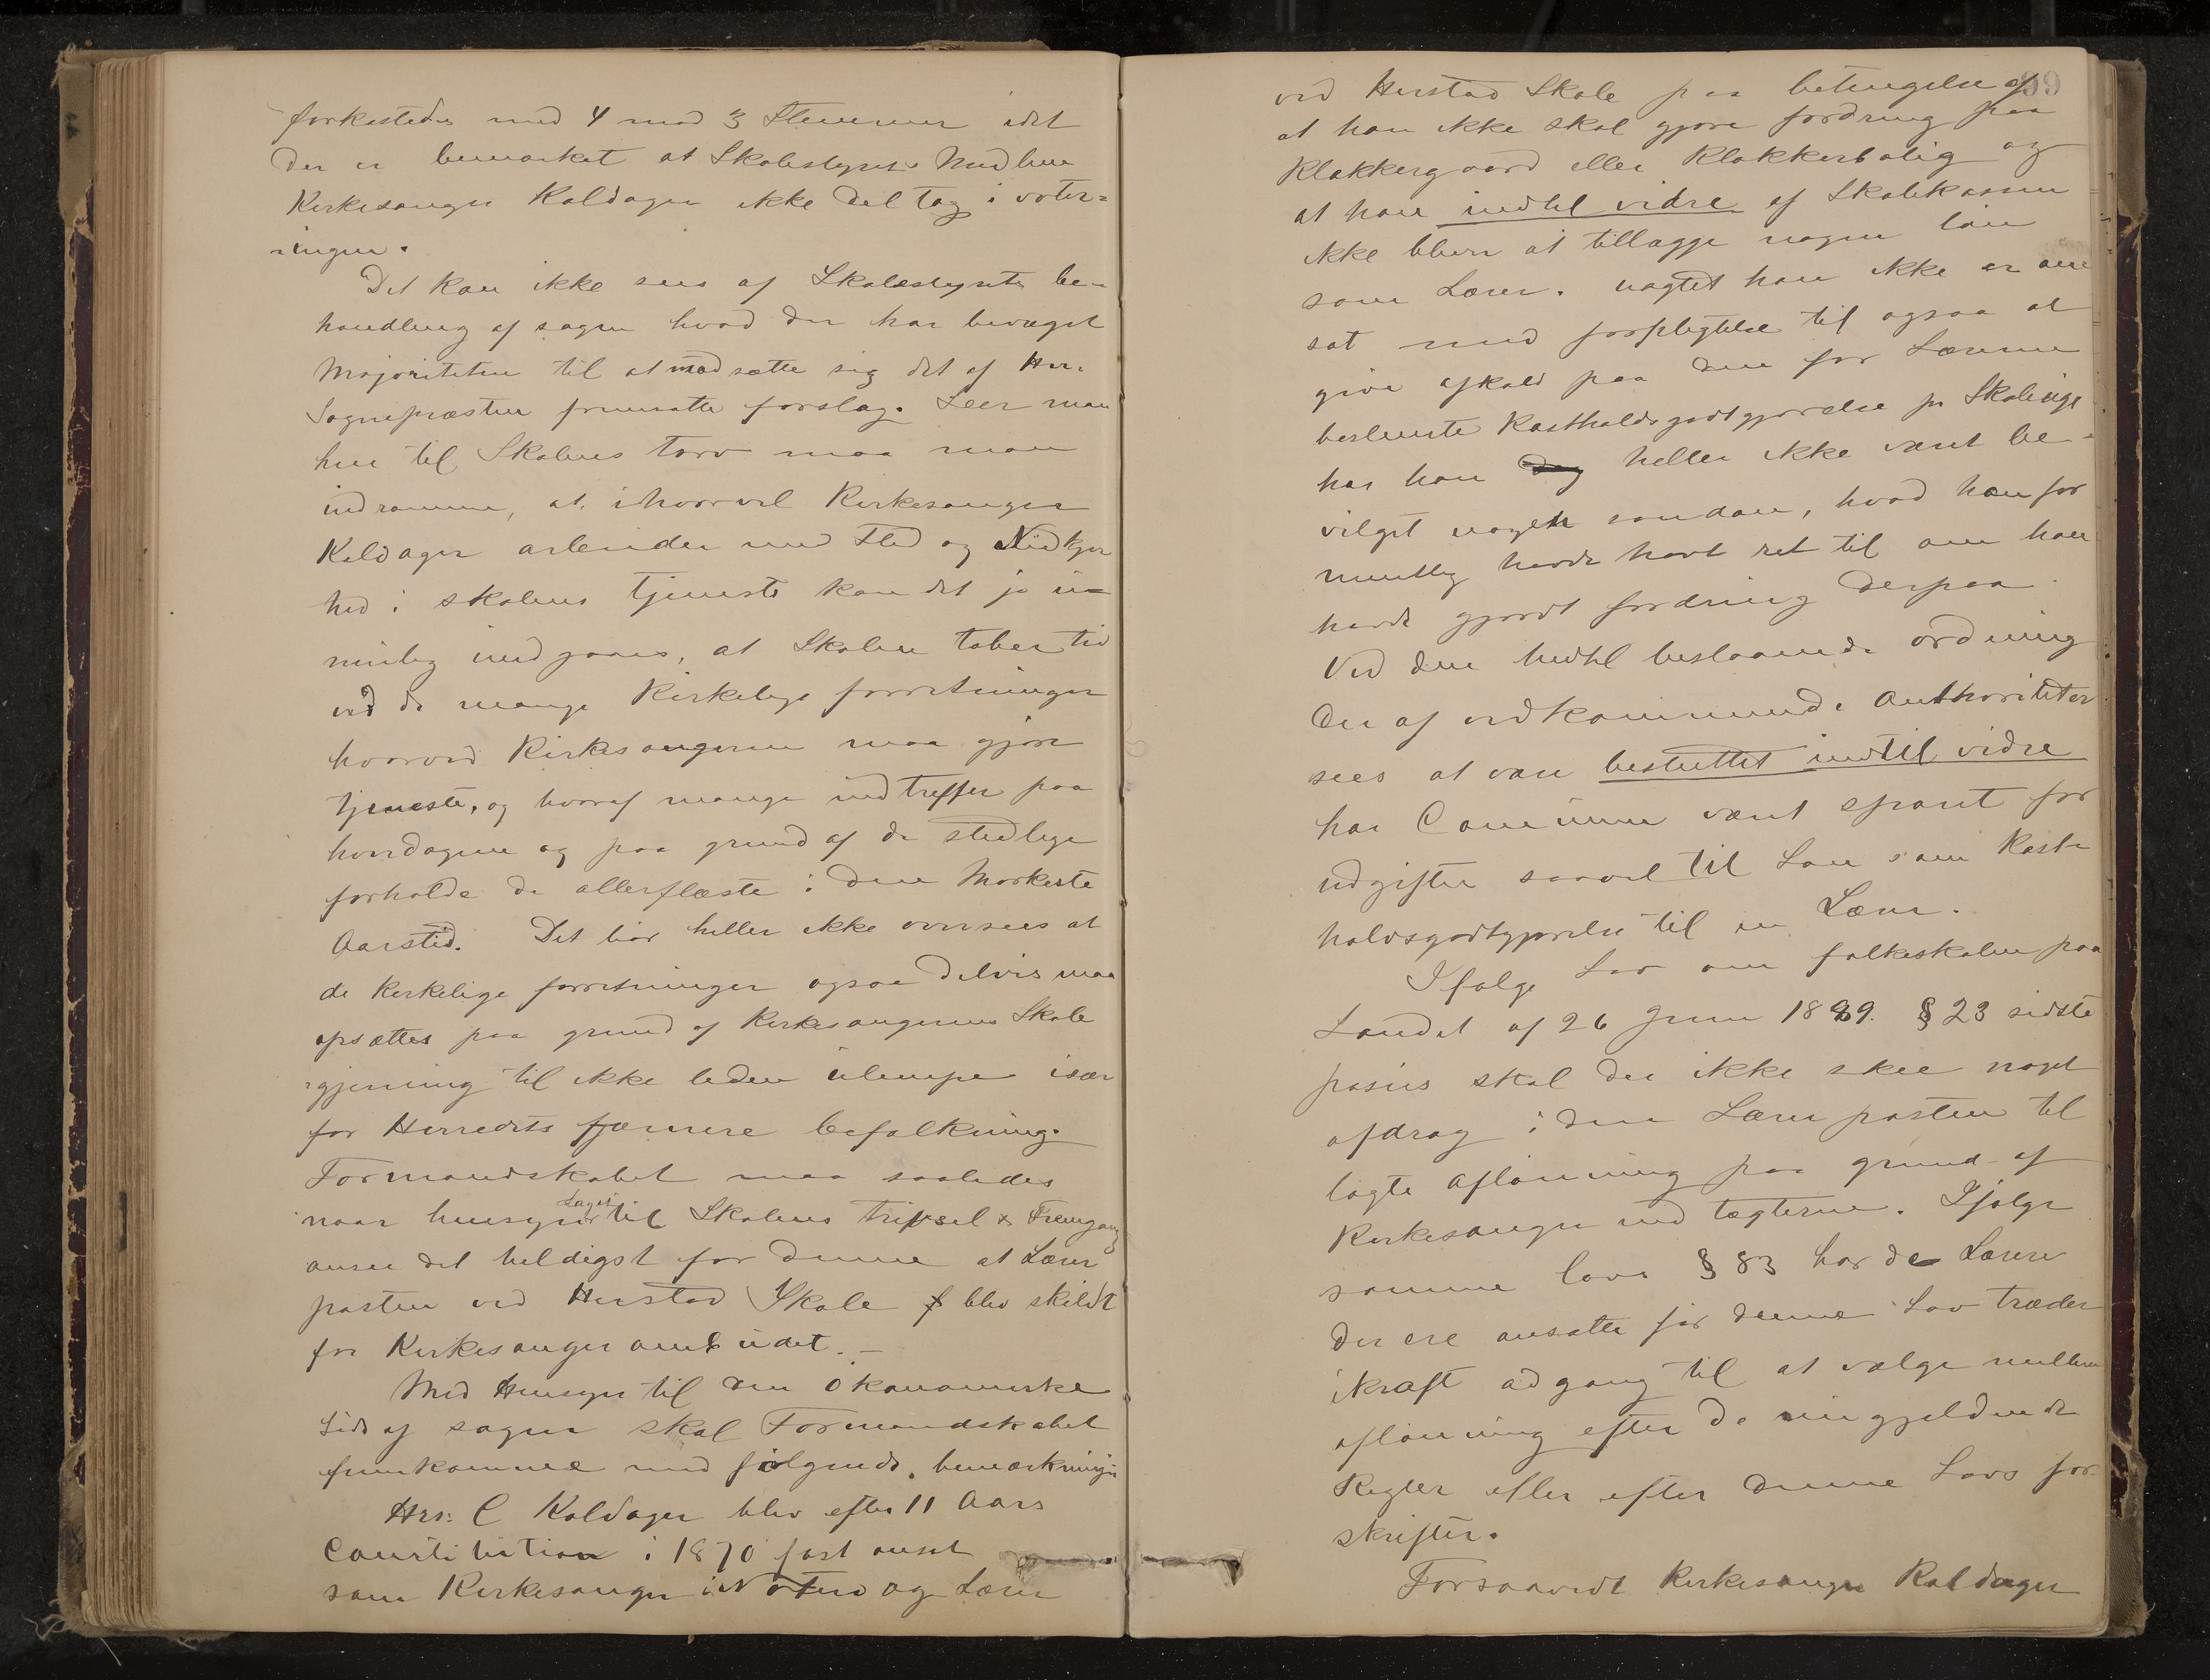 forkastedes med 4 mod 3 Stemmer idet
der er bemærket at Skolestyrets Medlem
Kirkesanger Kaldager ikke deltog i voter=
ingen.
Det kan ikke sees af Skolestyrets be-
handling af sagen hvad der har bevæget
Majoriteten til at modsætte sig det af Hr.
Sognepræsten fremsatte forslag. Seer man
hen til Skolens tarv maa man
indrømme, at ihvorvel Kirkesanger
Kaldager arbeider med Flid og Nidkjær
hed i skolens tjeneste kan det jo u=
mulig undgaaes, at Skolen taber tid
ved de mange Kirkelige forretninger
hvorved Kirkesangeren maa gjøre
tjeneste, og hvoraf mange indtreffer paa
hverdagene og paa grund af de stedlige
forholde de allerfleste i den Mørkeste
Aarstid. Det bør heller ikke oversees at
de Kirkelige forretninger ogsaa delvis maa
opsættes paa grund af Kirkesangerens Skole
gjerning til ikke liden ulempe især
for Herredets fjærnere befolkning.
Formandskabet maa saaledes
naar hensyn tages til Skolens trivsel & Fremgang
ansee det heldigst for denne at Lærer
posten ved Herstad Skole blev skildt
fra Kirkesanger ombudet. –
Med Hensyn til den Økonomiske
Side af sagen skal Formandskabet
fremkomme med følgende bemærkninger
Hr: C Kaldager blev efter 11 Aars
Constitution i 1870 fast ansat
som Kirkesanger i og Lærer
99
ved Herstad Skole paa betingelse af
at han ikke skal gjøre fordring paa
Klokkergaard eller Klokkerbolig og
at han indtil vidre af Skolekassen
ikke bliver at tillægge nogen løn
som Lærer. uagtet han ikke er an
sat med forpligtelse til ogsaa at
give afkald paa den for Lærerne
bestemte Kostholdsgodtgjørelse pr Skoleuge
har han dog heller ikke været be=
vilget nogen saadan, hvad han for
mentlig havde havt ret til om han
havde gjordt fordring derpaa.
Ved den hidtil bestaaende ordning
der af vedkommende Authoriteter
sees at være besluttet indtil vidre
har Communen været sparet for
udgifter saavel til Løn som Kost=
holdsgodtgjørelse til en Lærer.
Ifølge Lov om folkeskolen paa
Landet af 26 Juni 1889. § 23 sidste
passus skal der ikke skee noget
afdrag i den Lærerposten til
lagte aflønning paa grund af
Kirkesanger indtægterne. Ifølge
samme lovs § 83 har de Lærere
der ere ansatte før denne Lov træder
ikraft adgang til at vælge mellem
aflønning efter de nu gjeldende
Regler eller efter denne Lovs for-
skrifter.
Forsaavidt Kirkesanger Kaldager